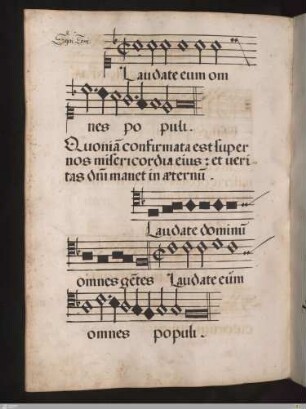 Laudate eum om
nes po puli.
Quoniā confirmata est super
nos misericordia eius: et veri
tas dnī manet in æternū.
Laudate dominū
omnes gētes Laudate eūm
omnes populi.